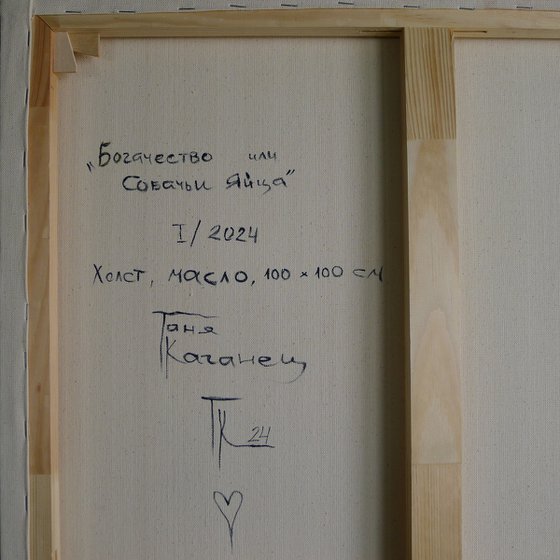 „Богачество или
Собачьи Яйца"
I/2024
Холст, масло, 100 × 100 см
Таня
Каганец
ТК 24